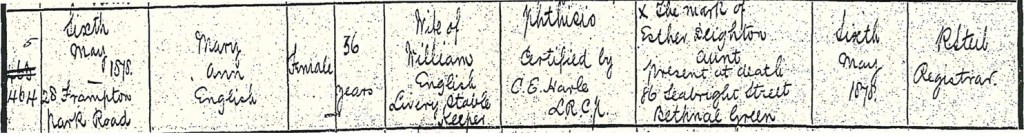 5
464
Sixth
May
1878.
28 Frampton
Park Road
Mary
Ann
English
Female
36
years
Wife of
William
English
Livery Stable
Keeper
Phthisis
Certified by
C. E. Harle
L.R.C.P.
X The mark of
Esther Deighton
Aunt
Present at death
86 Seabright Street
Bethnal Green
Sixth
May
1878.
Registrar